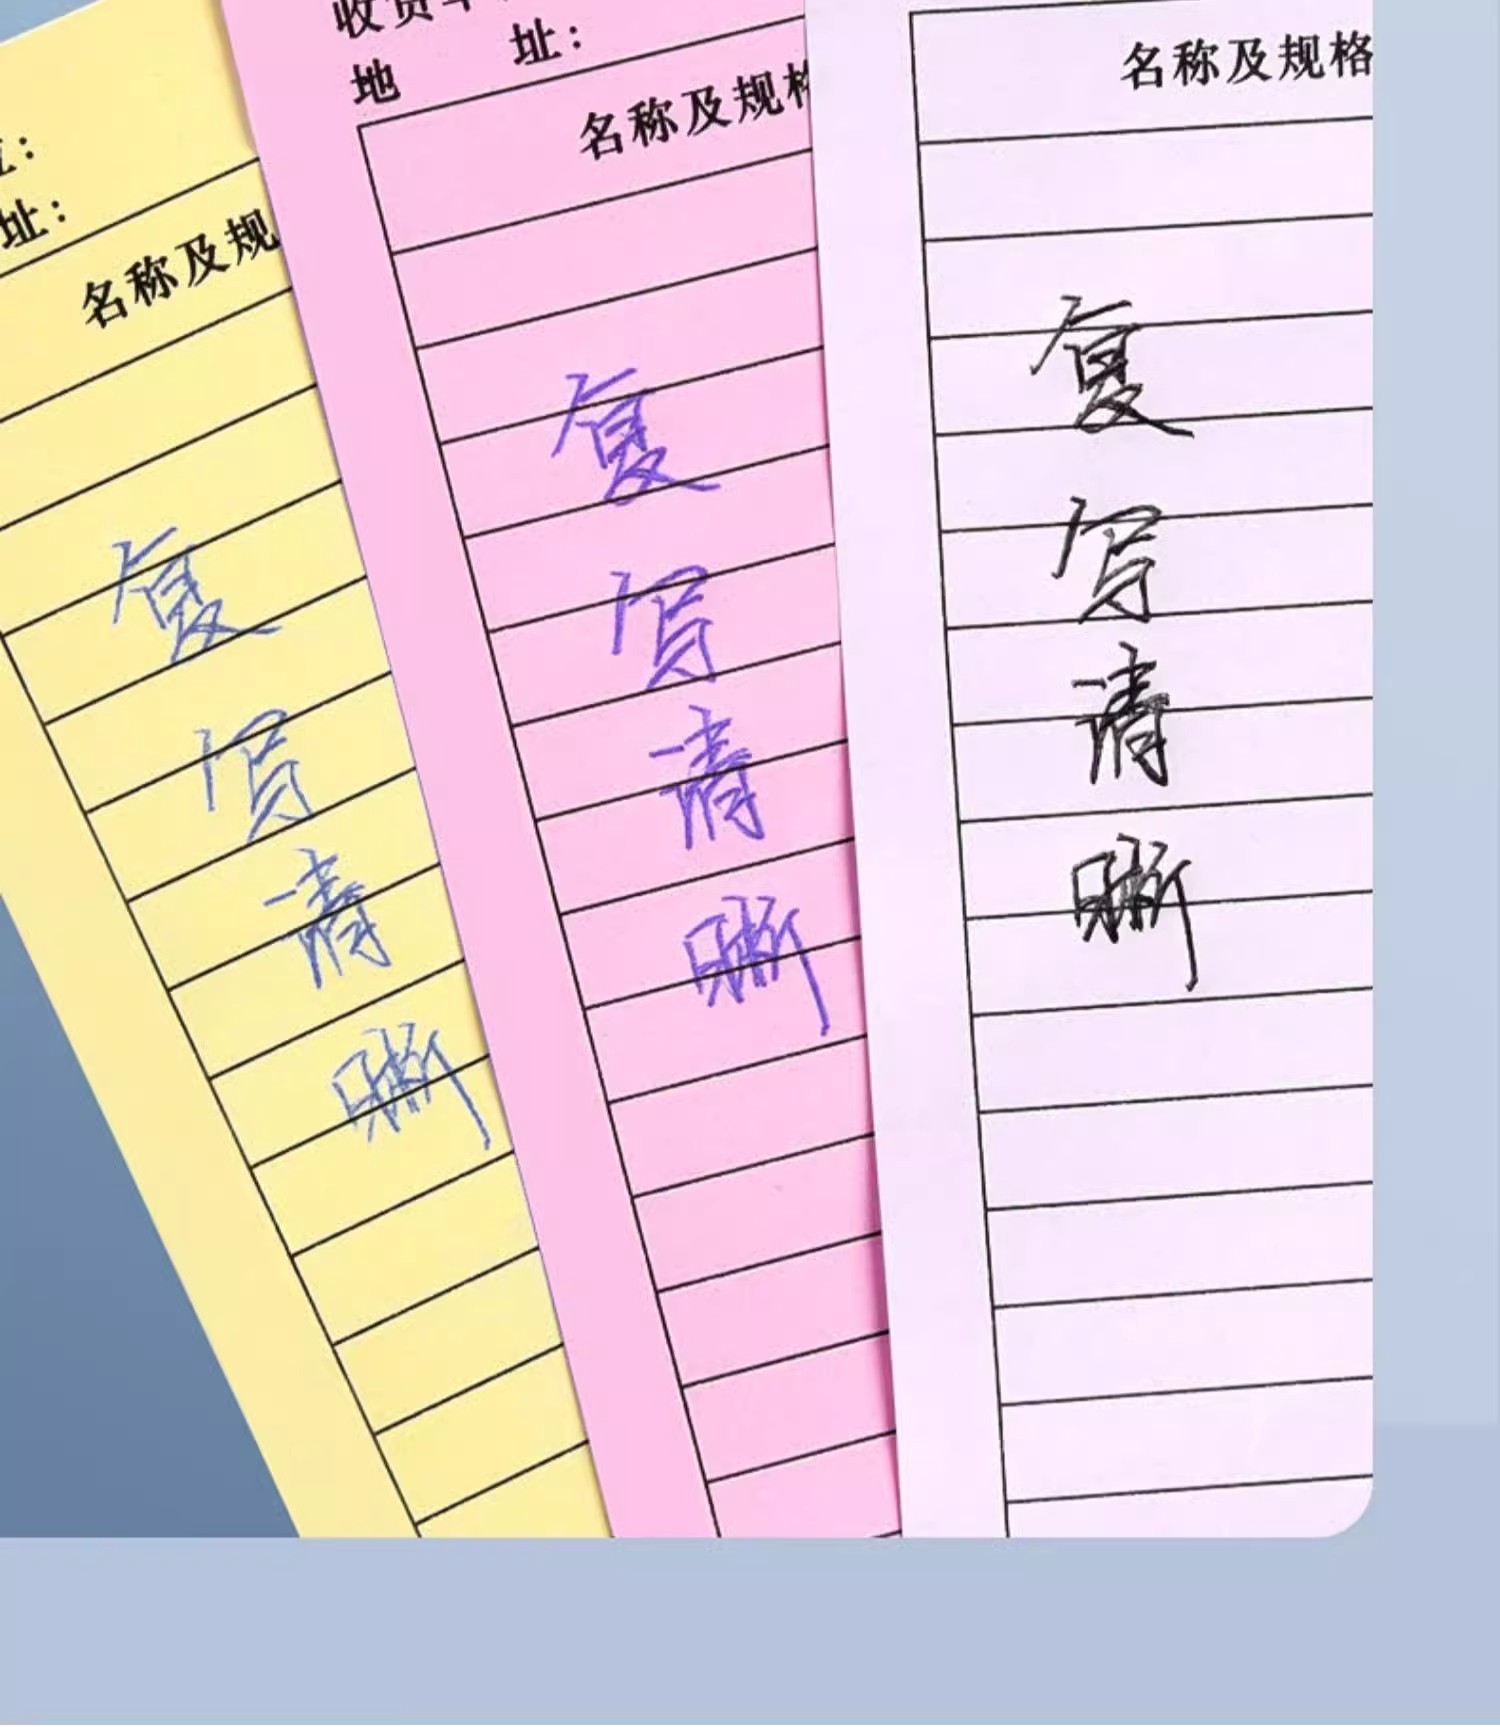 址：
名称及规
复
写
清
晰
收货单
地 址：
名称及规格
复
写
清
晰
名称及规格
复
写
清
晰